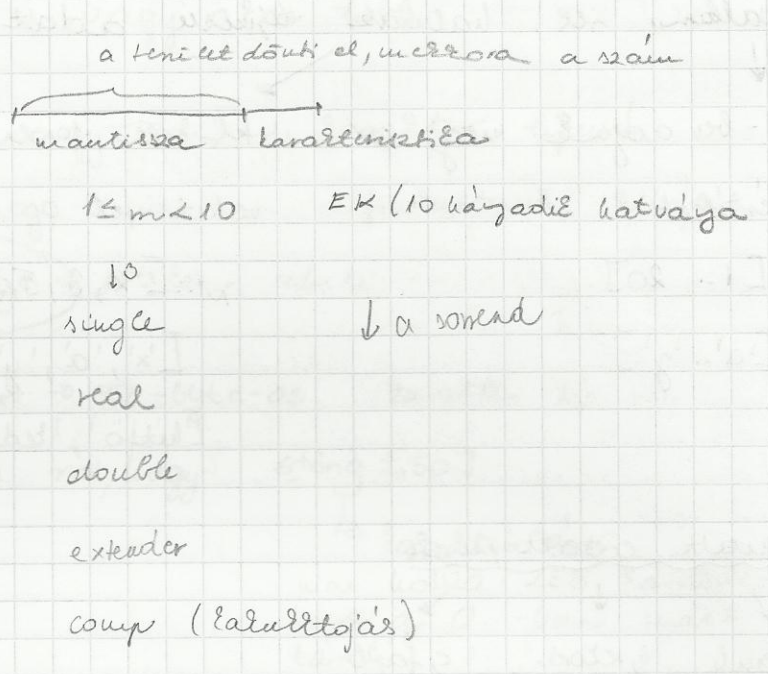 a terület dönti el, mekkora a szám
mantisza karakterisztika
1 ≤ m < 10 EK (10 hányadik hatványa
↓
single ↓ a sorrend
real
double
extender
comp (kakukktojás)